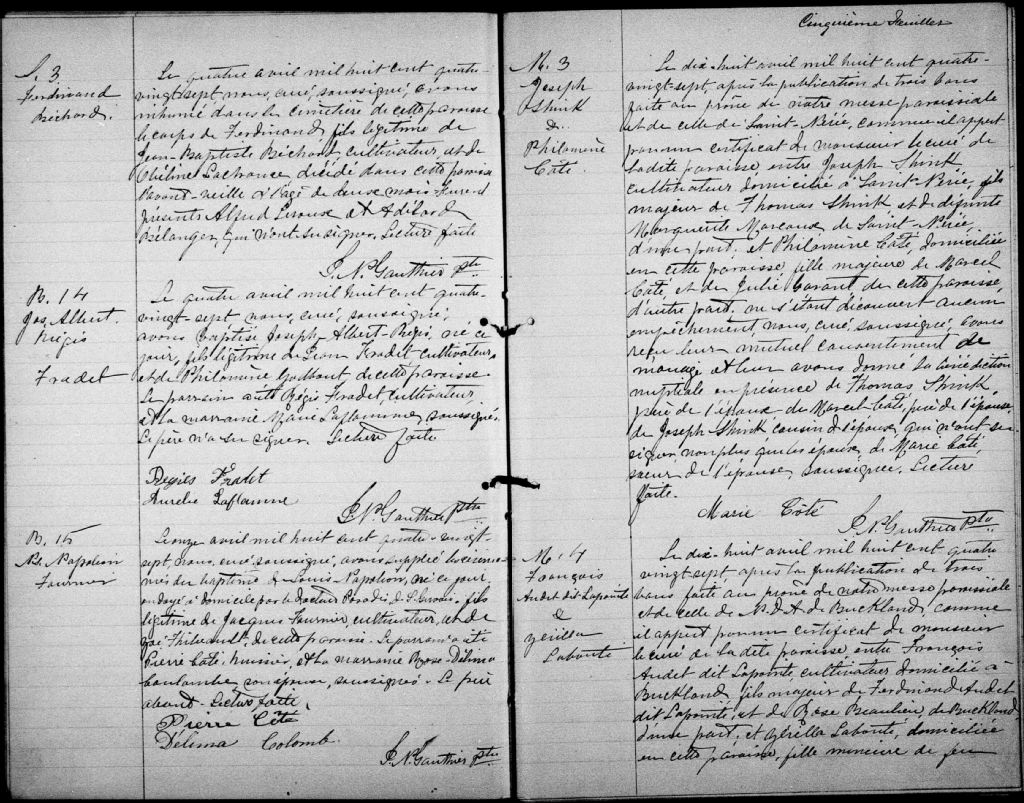 S. 3
Ferdinand
Béchard.
Le quatre avril mil huit cent quatre-
vingt-sept, nous, curé, soussigné, avons
inhumé dans le cimetière de cette paroisse
le corps de Ferdinand, fils légitime de
Jean-Baptiste Béchard, cultivateur, et de
Lachance décédé dans cette paroisse
l'avant-veille à l'âgé de deux mois. Furent
présents Alfred Leroux et Adélard
Bélanger, qui n'ont su signer. Lecture faite
J. N. Gauthier Ptre
B. 14
Jos. Albert.
Régis
Fradet
Le quatre avril mil huit cent quatre-
vingt-sept, nous, curé, soussigné,
avons baptisé Joseph-Albert-Régis, né ce
jour, fils légitime de Léon Fradet cultivateur
et de Philomène Godbout de cette paroisse
Le parrain a été Régis Fradet, cultivateur
et la marraine Laflamme, soussignés.
Le père n'a su signer. Lecture faite
Régis Fradet
Aurelie Laflamme
J. N. Gauthier Ptre
B. 15
Ls. Napoléon
Fournier
Le onze avril mil huit cent quatre-vingt-
sept, nous, curé, soussigné, avons suppléé les cérémo-
nies du baptême à Louis Napoléon, né ce jour,
ondoyé à domicile par le Docteur de St. Gervais. fils
légitime de Jacques Fournier, cultivateur, et de
Thibault, de cette paroisse. Le parrain a été
Pierre Côté, huissier, et la marraine Rose-Délima
Coulombe, son épouse, soussignés. Le père
absent. Lecture faite.
Pierre Côté
Délima Colomb.
J. N. Gauthier Ptre
Cinquième Feuillet
M. 3
Joseph
Shink
&
Philomène
Côté.
Le dix-huit avril mil huit cent quatre-
vingt-sept, après la publication de trois bans
faite au prône de notre messe paroissiale
et de celle de Saint-Nérée, comme il appert
par un certificat de monsieur le curé de
la dite paroisse, entre Joseph Shink
cultivateur domicilié à Saint-Nérée, fils
majeur de Thomas Shink et de défunte
Marguerite Morceau, de Saint-Nérée,
d'une part, et Philomène Côté, domiciliée
en cette paroisse, fille majeure de Marcel
Côté, et de Julie de cette paroisse,
d'autre part, ne s'étant découvert aucun
empêchement, nous, curé, soussigné, avons
reçu leur mutuel consentement de
mariage et leur avons donné la bénédiction
nuptiale en présence de Thomas Shink,
père de l'époux, de Marcel Côté, père de l'épouse,
de Joseph Shink, cousin d'époux, qui n'ont su
signer, non plus que les époux, de Marie Côté,
sœur de l'épouse, soussignée. Lecture
faite.
Marie Côté
J. N. Gauthier Ptre
M. 4
François
Audet dit Lapointe
&
Zérilla
Labonté
Le dix-huit avril mil huit cent quatre
vingt-sept, après la publication de trois
bans faite au prône de notre messe paroissiale
et de celle de N. D. A. de Buckland, comme
il appert par un certificat de monsieur
le curé de la dite paroisse, entre François
Audet dit Lapointe, cultivateur domicilié à
Buckland, fils majeur de Ferdinand Audet
dit Lapointe, et de Rose Beaulieu, de Buckland
d'une part, et Zérilla Labonté, domiciliée
en cette paroisse, fille mineure de feu